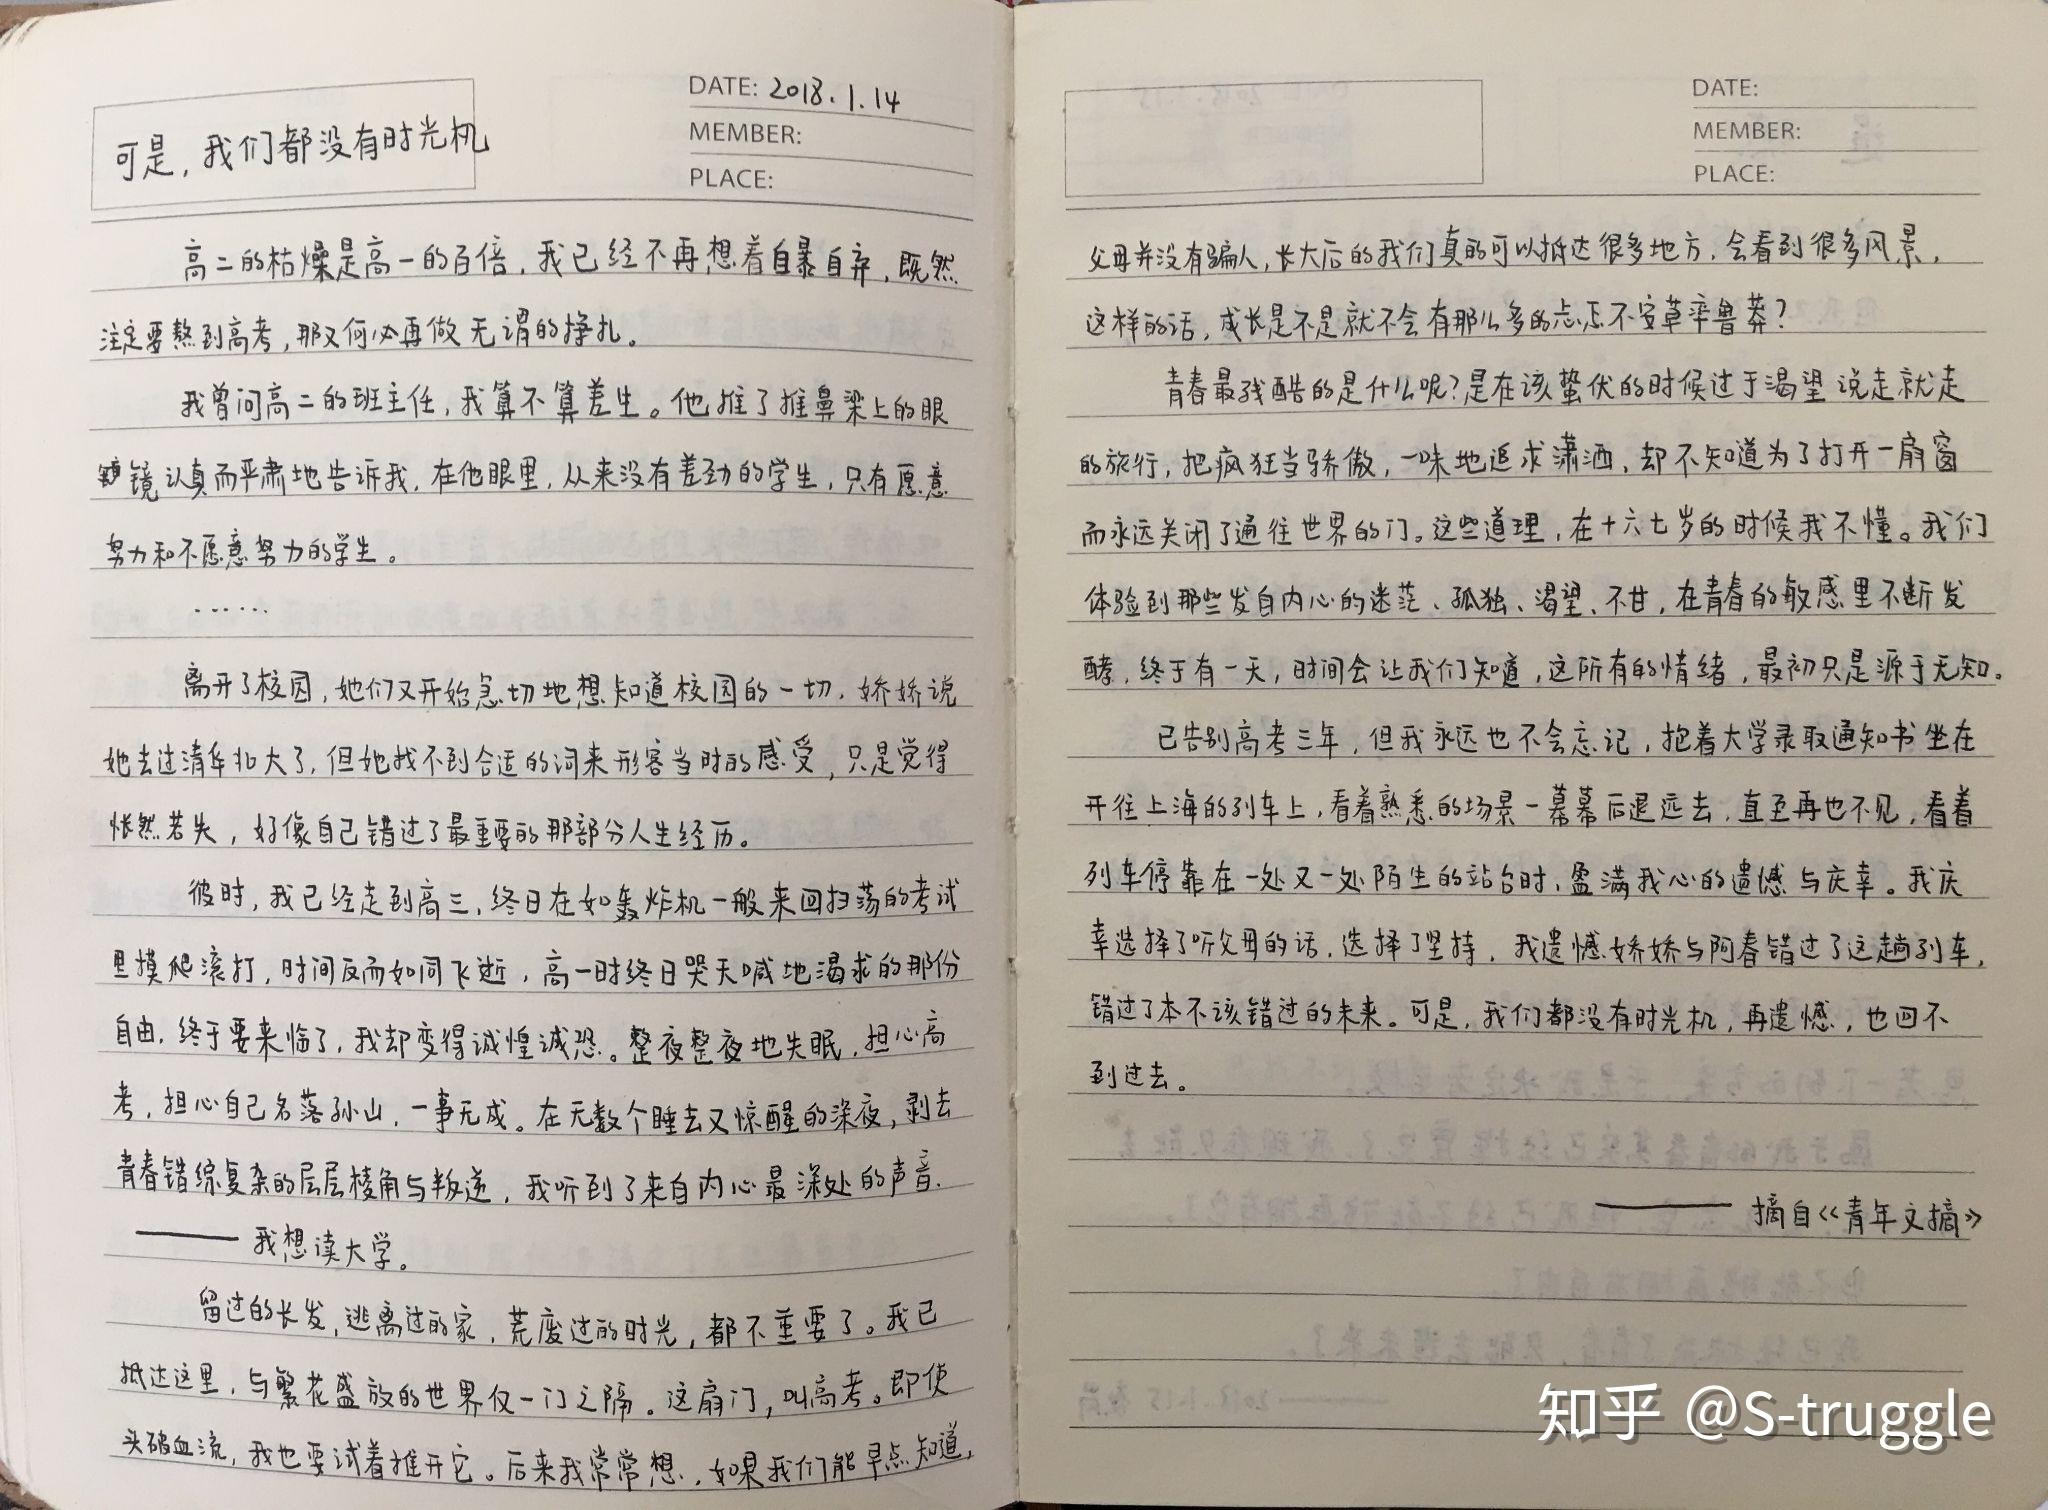 可是，我们都没有时光机
DATE: 2018.1.14
MEMBER:
PLACE:
高二的枯燥是高一的百倍，我已经不再想着自暴自弃，既然
注定要熬到高考，那又何必再做无谓的挣扎。
我曾问高二的班主任，我算不算差生。他推了推鼻梁上的眼
镜认真而严肃地告诉我，在他眼里，从来没有差劲的学生，只有愿意
努力和不愿意努力的学生。
······
离开了校园，她们又开始急切地想知道校园的一切，娇娇说
她去过清华北大了，但她找不到合适的词来形容当时的感受，只是觉得
怅然若失，好像自己错过了最重要的那部分人生经历。
彼时，我已经走到高三，终日在如轰炸机一般来回扫荡的考试
里摸爬滚打，时间反而如同飞逝，高一时终日哭天喊地渴求的那份
自由，终于要来临了，我却变得诚惶诚恐。整夜整夜地失眠，担心高
考，担心自己名落孙山，一事无成。在无数个睡去又惊醒的深夜，剥去
青春错综复杂的层层棱角与叛逆，我听到了来自内心最深处的声音.
——我想读大学。
留过的长发，逃离过的家，荒废过的时光，都不重要了。我已
抵达这里，与繁花盛放的世界仅一门之隔。这扇门，叫高考。即使
头破血流，我也要试着推开它。后来我常常想，如果我们能早点知道，
DATE:
MEMBER:
PLACE:
父母并没有骗人，长大后的我们真的可以抵达很多地方，会看到很多风景，
这样的话，成长是不是就不会有那么多的忐忑不安草率鲁莽？
青春最残酷的是什么呢？是在该蛰伏的时候过于渴望说走就走
的旅行，把疯狂当骄傲，一味地追求潇洒，却不知道为了打开一扇窗
而永远关闭了通往世界的门。这些道理，在十六七岁的时候我不懂。我们
体验到那些发自内心的迷茫、孤独、渴望、不甘，在青春的敏感里不断发
酵，终于有一天，时间会让我们知道，这所有的情绪，最初只是源于无知。
已告别高考三年，但我永远也不会忘记，抱着大学录取通知书坐在
开往上海的列车上，看着熟悉的场景一幕幕后退远去，直至再也不见，看着
列车停靠在一处又一处陌生的站台时，盈满我心的遗憾与庆幸。我庆
幸选择了听父母的话，选择了坚持，我遗憾娇娇与阿春错过了这趟列车，
错过了本不该错过的未来。可是，我们都没有时光机，再遗憾，也回不
到过去。
——摘自《青年文摘》
知乎 @S-truggle